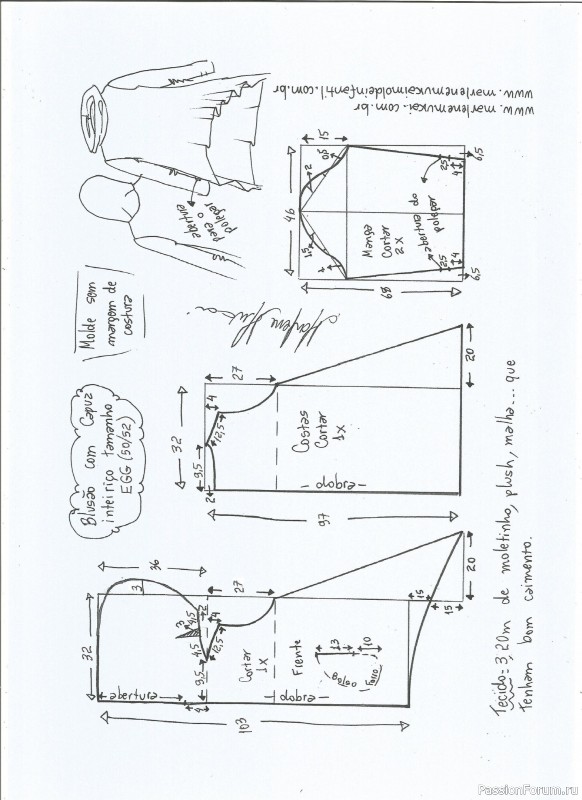 Blusão com Capuz
inteiriço tamanho
EGG (50/52)
Molde sem
margem de
costura
abertura
para o
polegar
www.marlenemukai.com.br
www.marlenemukaimoldeinfantil.com.br
Marlene Mukai
46
15
0,5
2
1,5
1
Manga
Cortar
2x
abertura do
polegar
2,5
4
6,5
2,5
4
6,5
68
32
27
4
12,5
9,5
2
Costas
Cortar
1x
dobra
97
20
36
3
32
entrefre
4
9,5
4,5
3
4,5
2
4
12,5
27
Cortar
1x
Frente
dobra
13
10
Bolso
Forro
15
15
20
103
Tecido = 3,20m de moletinho, plush, malha... que
tenham bom caimento.
PassionForum.ru